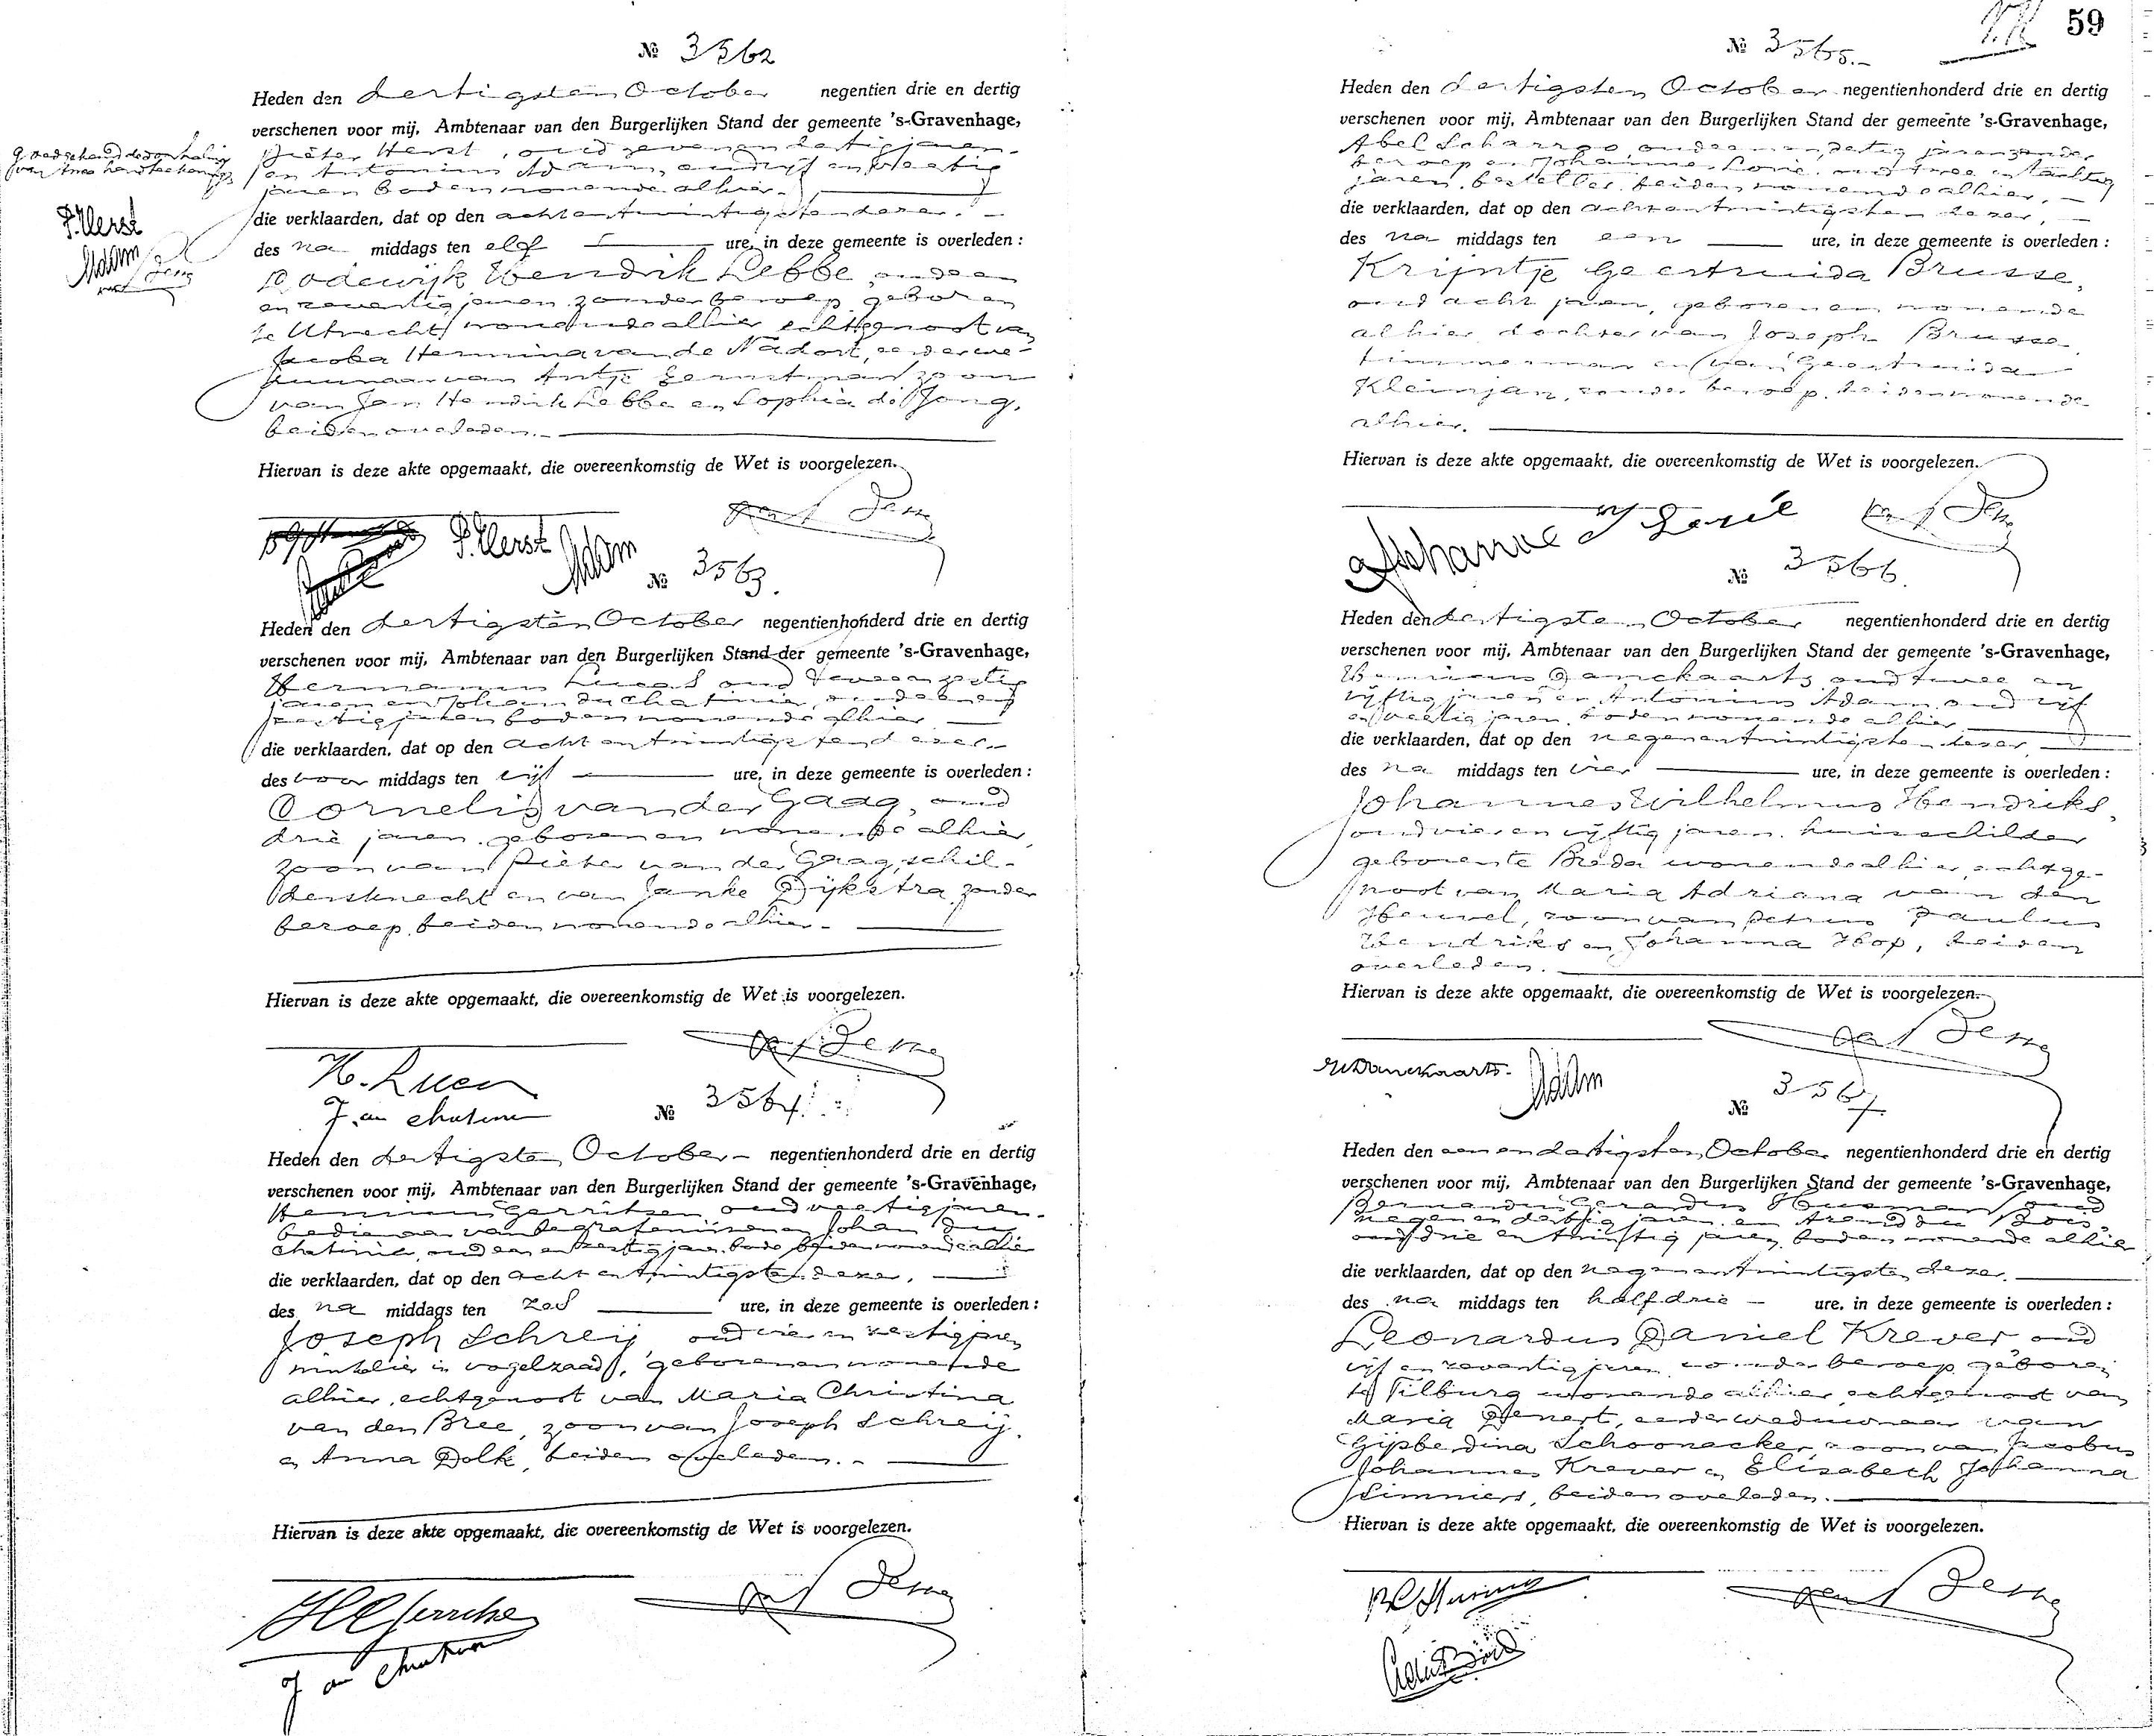 № 3562
Heden den dertigsten October negentien drie en dertig
verschenen voor mij, Ambtenaar van den Burgerlijken Stand der gemeente 's-Gravenhage,
Pieter Herst, oud zeven en dertig jaren
en Antonius Adam, oud vijf en veertig
jaren boden wonende alhier.
die verklaarden, dat op den acht en twintigsten dezer.
des na middags ten elf ure, in deze gemeente is overleden:
Lodewijk Hendrik Lebbe, oud een
en zeventig jaren zonder beroep geboren
te Utrecht wonende alhier echtgenoot van
Jacoba Hermina van de Nadort, eerder we-
duwnaar van Antje zoon
van Jan Hendrik Lebbe en Sophia de Jong,
beiden overleden.
Hiervan is deze akte opgemaakt, die overeenkomstig de Wet is voorgelezen.
goedgekeurd de doorhaling
van twee handteekeningen
P. Herst
Adam
P. Herst
Adam
№ 3563.
Heden den dertigsten October negentienhonderd drie en dertig
verschenen voor mij, Ambtenaar van den Burgerlijken Stand der gemeente 's-Gravenhage,
Hermanus Lucas oud
jaren en Johan du Chatinier, oud een en
veertig jaren boden wonende alhier
die verklaarden, dat op den acht en twintigsten dezer
des voor middags ten vijf ure, in deze gemeente is overleden:
Cornelis van der Gaag, oud
drie jaren, geboren en wonende alhier,
zoon van Pieter van der Gaag, schil-
dersknecht en van Janke Dijkstra zonder
beroep, beiden wonende alhier.
Hiervan is deze akte opgemaakt, die overeenkomstig de Wet is voorgelezen.
H. Lucas
№ 3564
Heden den dertigsten October negentienhonderd drie en dertig
verschenen voor mij, Ambtenaar van den Burgerlijken Stand der gemeente 's-Gravenhage,
Gerritsen oud veertig jaren
bedienaar van begrafenissen en Johan du
Chatinier, oud een en veertig jaren bode, beiden wonende alhier
die verklaarden, dat op den acht en twintigsten dezer,
des na middags ten zes ure, in deze gemeente is overleden:
Joseph Schreij, oud vier en jaren
winkelier in vogelzaad, geboren en wonende
alhier, echtgenoot van Maria Christina
van den Bree, zoon van Joseph Schreij
en Anna Dolk, beiden overleden.
Hiervan is deze akte opgemaakt, die overeenkomstig de Wet is voorgelezen.
59
№ 3565.
Heden den dertigsten October negentienhonderd drie en dertig
verschenen voor mij, Ambtenaar van den Burgerlijken Stand der gemeente 's-Gravenhage,
Abel Scharroo, oud een en dertig jaren zonder
beroep en Johannes oud twee en tachtig
jaren, besteller, beiden wonende alhier,
die verklaarden, dat op den acht en twintigsten dezer,
des na middags ten een ure, in deze gemeente is overleden:
Krijntje Geertruida Brusse,
oud acht jaren, geboren en wonende
alhier dochter van Joseph Brusse
timmerman en van Geertruida
Kleinjan, zonder beroep, beiden wonende
alhier.
Hiervan is deze akte opgemaakt, die overeenkomstig de Wet is voorgelezen.
№ 3566.
Heden den dertigsten October negentienhonderd drie en dertig
verschenen voor mij, Ambtenaar van den Burgerlijken Stand der gemeente 's-Gravenhage,
Danckaarts oud twee en
vijftig jaren en Antonius Adam, oud vijf
en veertig jaren, boden wonende alhier
die verklaarden, dat op den negen en twintigsten dezer
des na middags ten vier ure, in deze gemeente is overleden:
Johannes Wilhelmus Hendriks,
oud vier en vijftig jaren, huisschilder
geboren te Breda wonende alhier, echtge-
noot van Maria Adriana van den
Heuvel, zoon van Petrus Paulus
Hendriks en Johanna Hop, beiden
overleden.
Hiervan is deze akte opgemaakt, die overeenkomstig de Wet is voorgelezen.
Danckaarts.
Adam
№ 3567
Heden den een en dertigsten October negentienhonderd drie en dertig
verschenen voor mij, Ambtenaar van den Burgerlijken Stand der gemeente 's-Gravenhage,
Bernardus Gerardus oud
negen en dertig jaren en Arend du Bois
oud drie en jaren, boden wonende alhier
die verklaarden, dat op den negen en twintigsten dezer.
des na middags ten half drie ure, in deze gemeente is overleden:
Leonardus Daniel Krever oud
vijf en zeventig jaren zonder beroep geboren
te Tilburg wonende alhier, echtgenoot van
Maria eerder weduwnaar van
Gijsberdina Schoonacker, zoon van Jacobus
Johannes Krever en Elisabeth Johanna
beiden overleden.
Hiervan is deze akte opgemaakt, die overeenkomstig de Wet is voorgelezen.